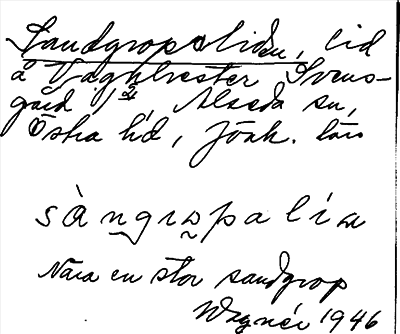 Sandgropsliden, lid
å Väghvester Svens-
gård 1 2/4 Alseda sn,
Östra hd, Jönk. län
sàngrɷpalíɷ
Nära en stor sandgrop
Wagnér 1946